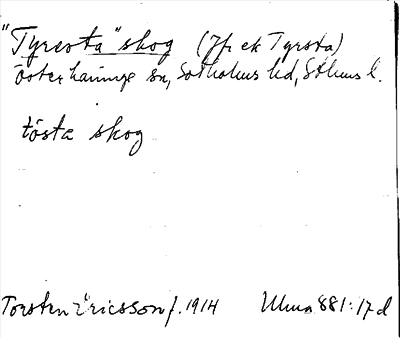 "Tyresta" skog (Jfr ek Tyrsta)
Österhaninge sn, Sotholms hd, Sthlms l.
tösta skog
Torsten Ericsson f. 1914 Ulma 881:17 d